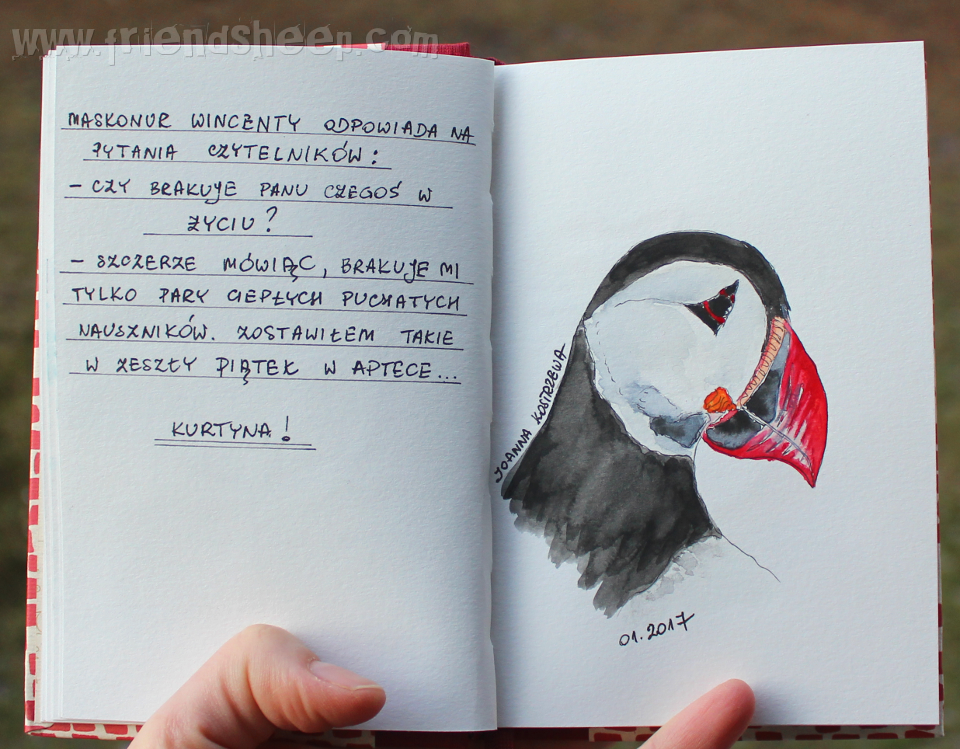 www.friendsheep.com
MASKONUR WINCENTY ODPOWIADA NA
PYTANIA CZYTELNIKÓW:
- CZY BRAKUJE PANU CZEGOŚ W
ŻYCIU?
- SZCZERZE MÓWIĄC, BRAKUJE MI
TYLKO PARY CIEPŁYCH PUCHATYCH
NAUSZNIKÓW. ZOSTAWIŁEM TAKIE
W ZESZŁY PIĄTEK W APTECE...
KURTYNA!
JOANNA KOSTRZEWA
01.2017